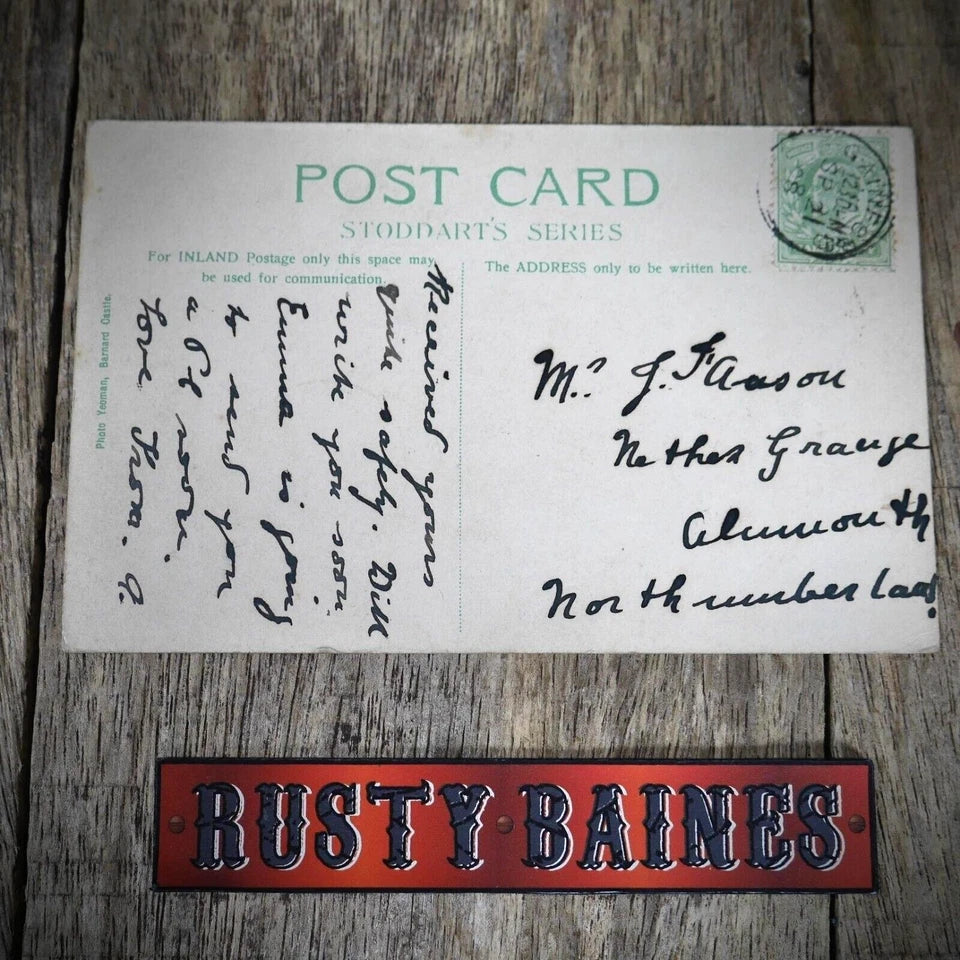 POST CARD
STODDART'S SERIES
For INLAND Postage only this space may
be used for communication.
The ADDRESS only to be written here.
Photo Yeoman, Barnard Castle.
Received yours
quite safely. Will
write you soon.
Emma is going
to send you
a P.P. soon.
Love from. G.
Mrs J. F. Aason
Nether Grange
Alnmouth
Northumberland.
GAINF
RUSTY BAINES